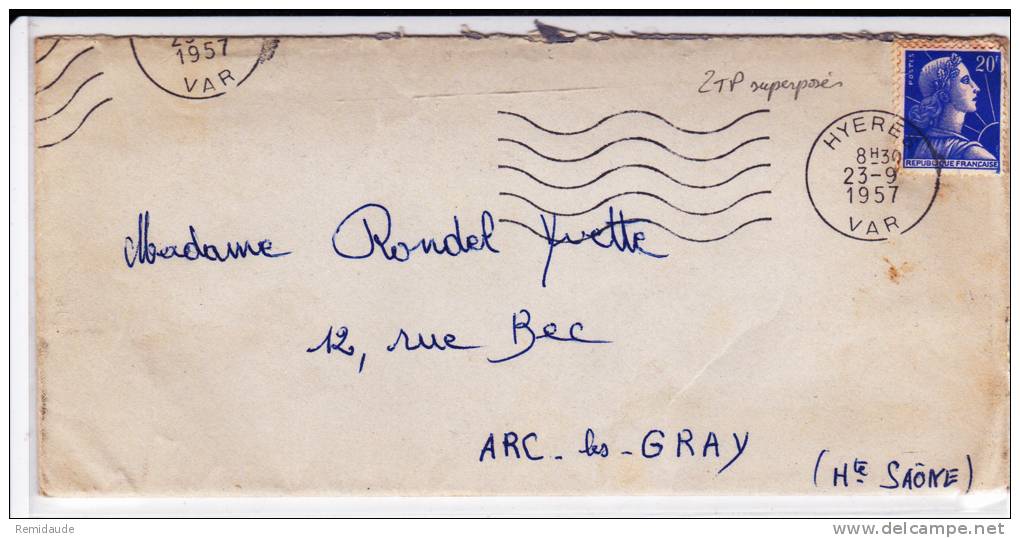 1957
VAR
2TP superposés
POSTES
20F
REPUBLIQUE FRANÇAISE
HYERE
8H30
23-9
1957
VAR
Madame Rondel Yvette
12, rue Bec
ARC-les-GRAY
(Hte SAÔNE)
Remidaude
www.delcampe.net